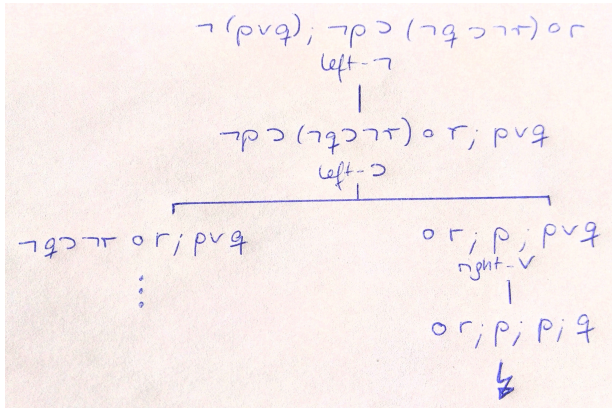 ¬(p∨q); ¬p ⊃ (¬q ⊃ ¬r) o r
left-¬
¬p ⊃ (¬q⊃¬r) o r; p∨q
left-⊃
¬q⊃¬r o r; p∨q
o r; p; p∨q
right-∨
o r; p; p; q